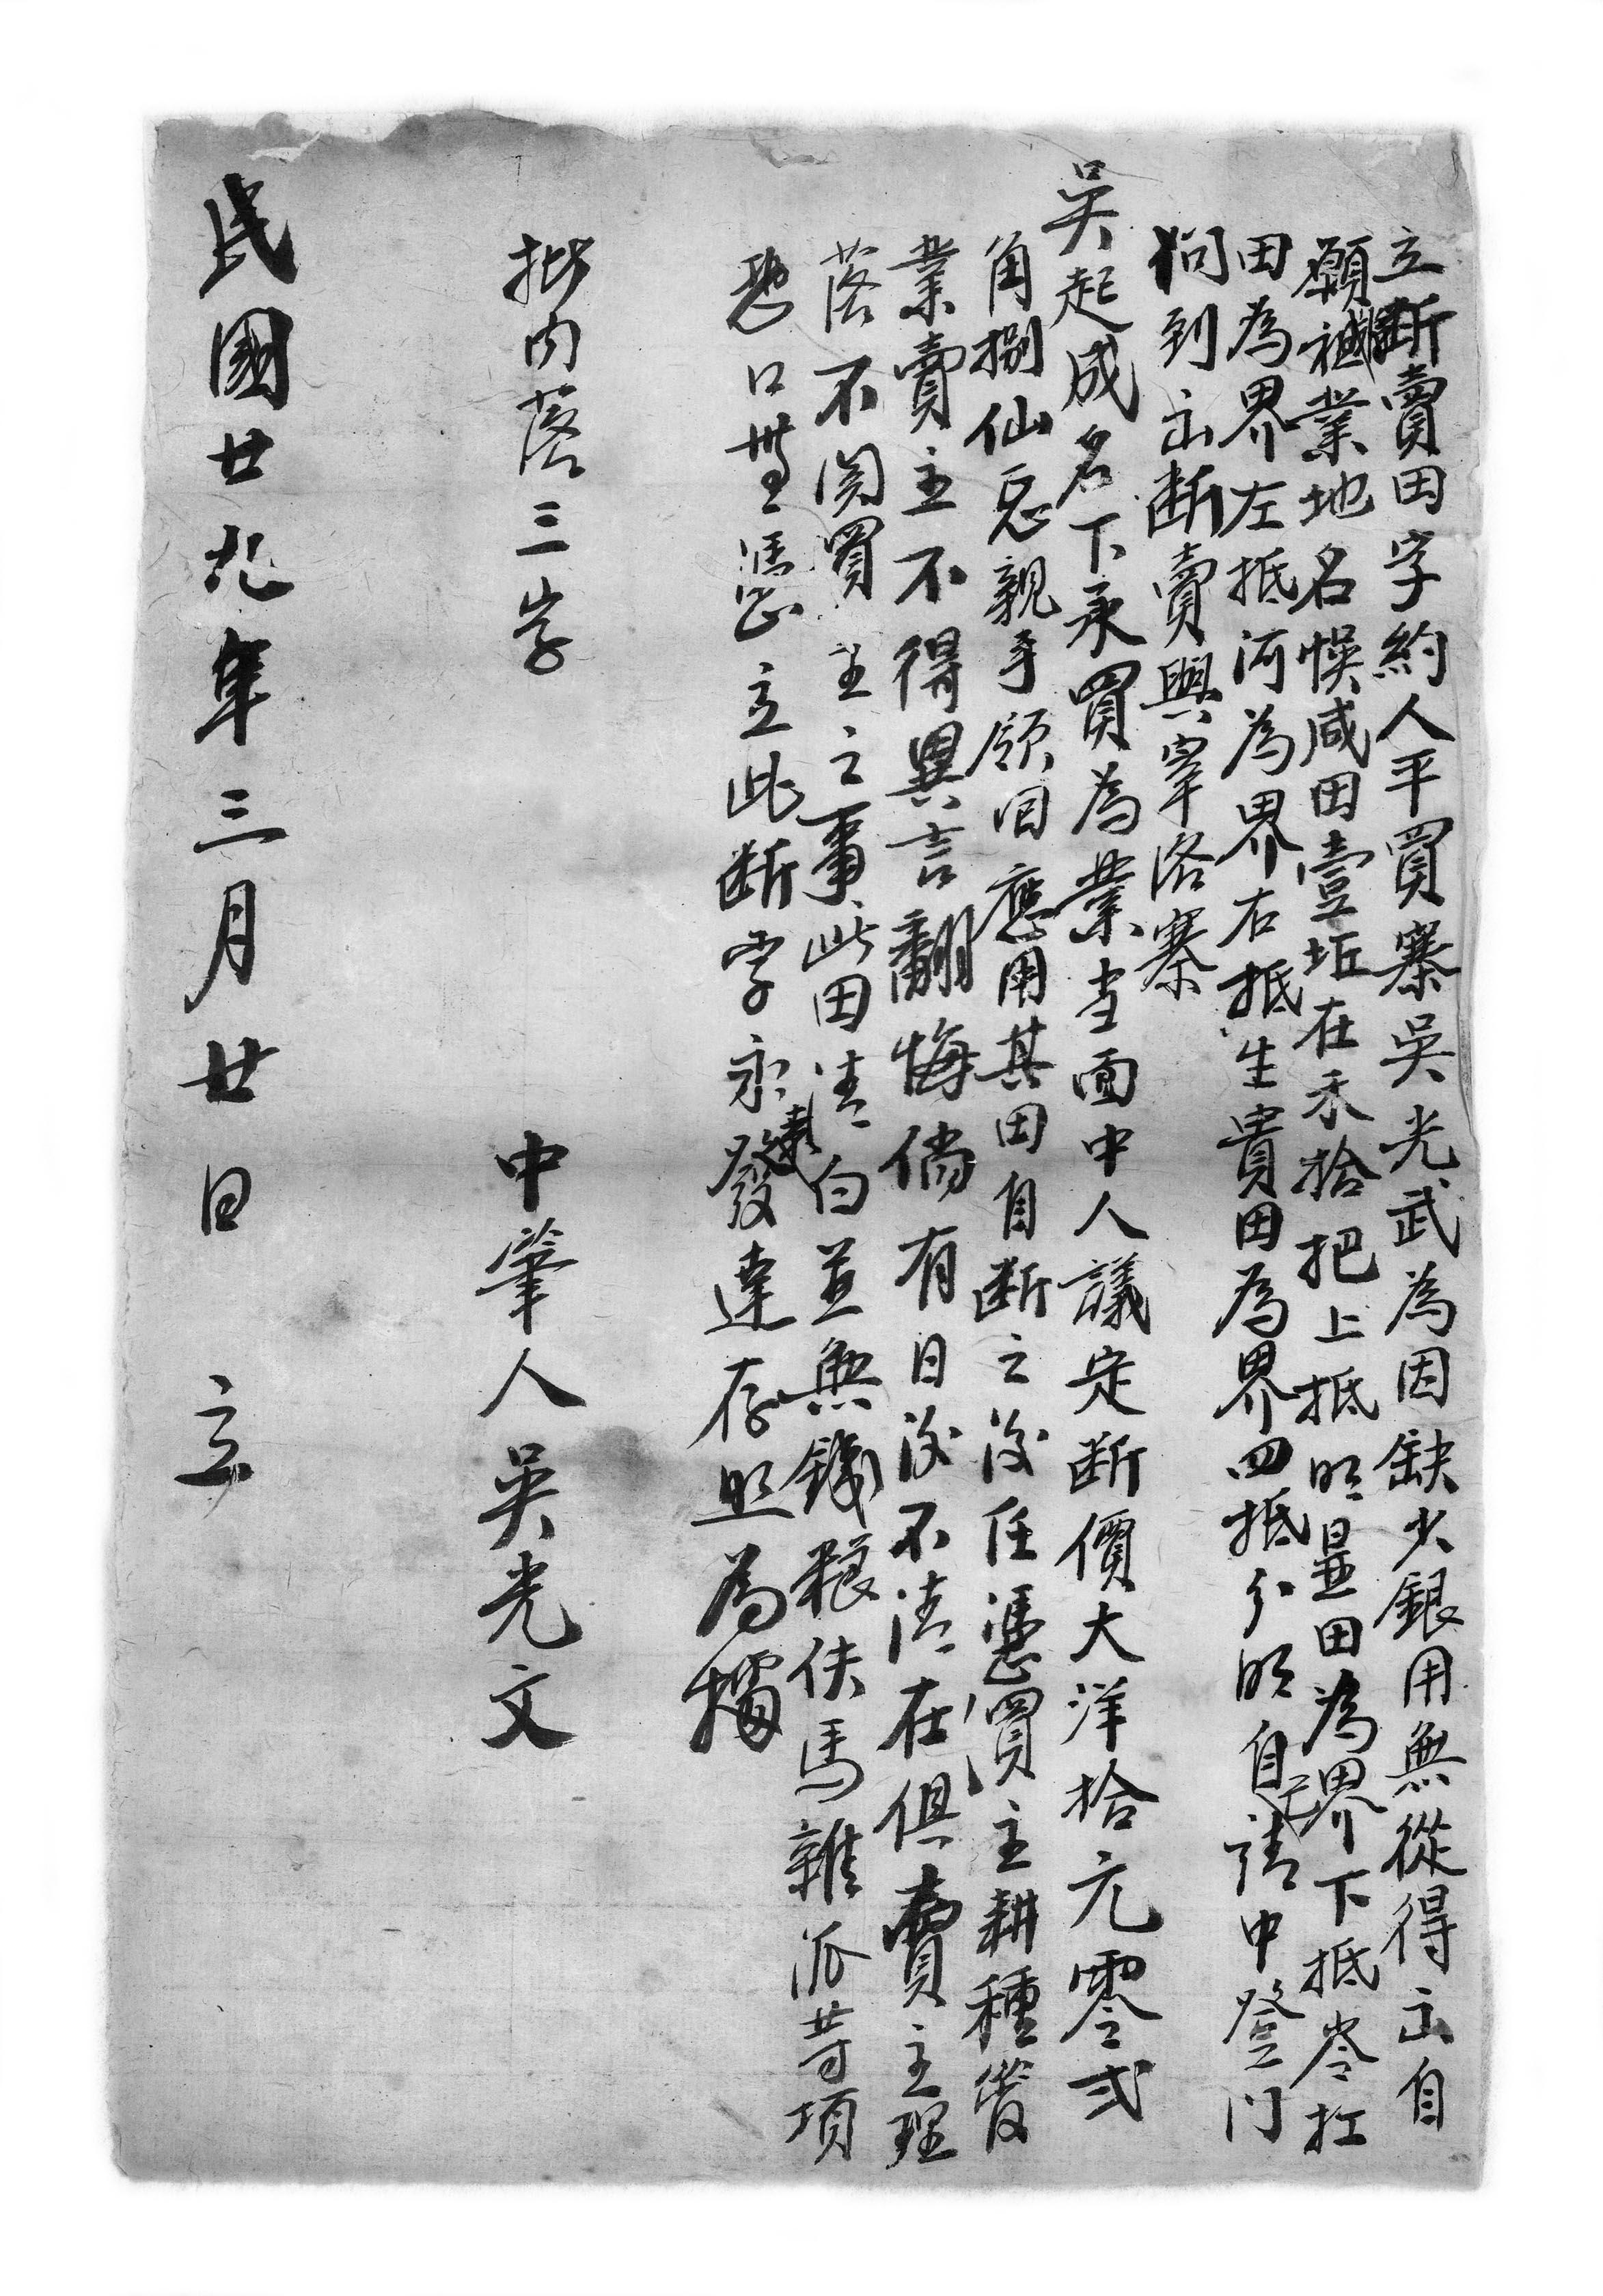 立斷賣田字約人平買寨吳光武為因缺少銀用無從得出自
願將祖業地名悮咸田壹坵在禾拾把上抵明显田為界下抵岑扛
田為界左抵河為界右抵生貴田為界四抵分明自己請中登門
问到出断賣與宰洛寨
吳起成名下承買為業当面中人議定断價大洋拾元零弍
角捌仙恴親手領回應用其田自断之後任憑買主耕種管
業賣主不得異言翻悔倘有日後不清在俱賣主理
落不関買主之事此田清白並無錢粮伕馬雜派等項
恐口無憑立此断字永遠發達存照為據
批内落三字
中筆人吳光文
民國廿九年三月廿日 立